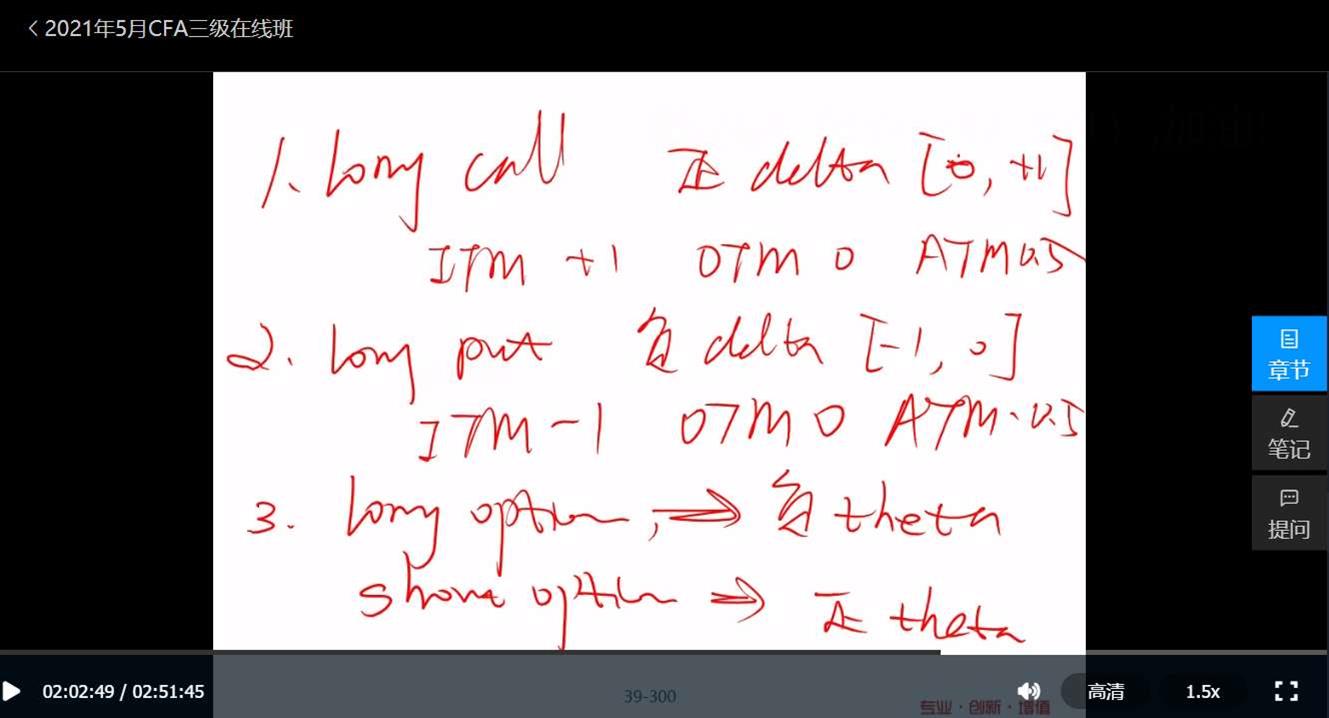 2021年5月CFA三级在线班
1. long call 正 delta [0, +1]
ITM +1 OTM 0 ATM 0.5
2. long put 负 delta [-1, 0]
ITM -1 OTM 0 ATM -0.5
3. long option, ⇒ 负 theta
short option ⇒ 正 theta
章节
笔记
提问
02:02:49 / 02:51:45
39-300
高清
1.5x
专业·创新·增值